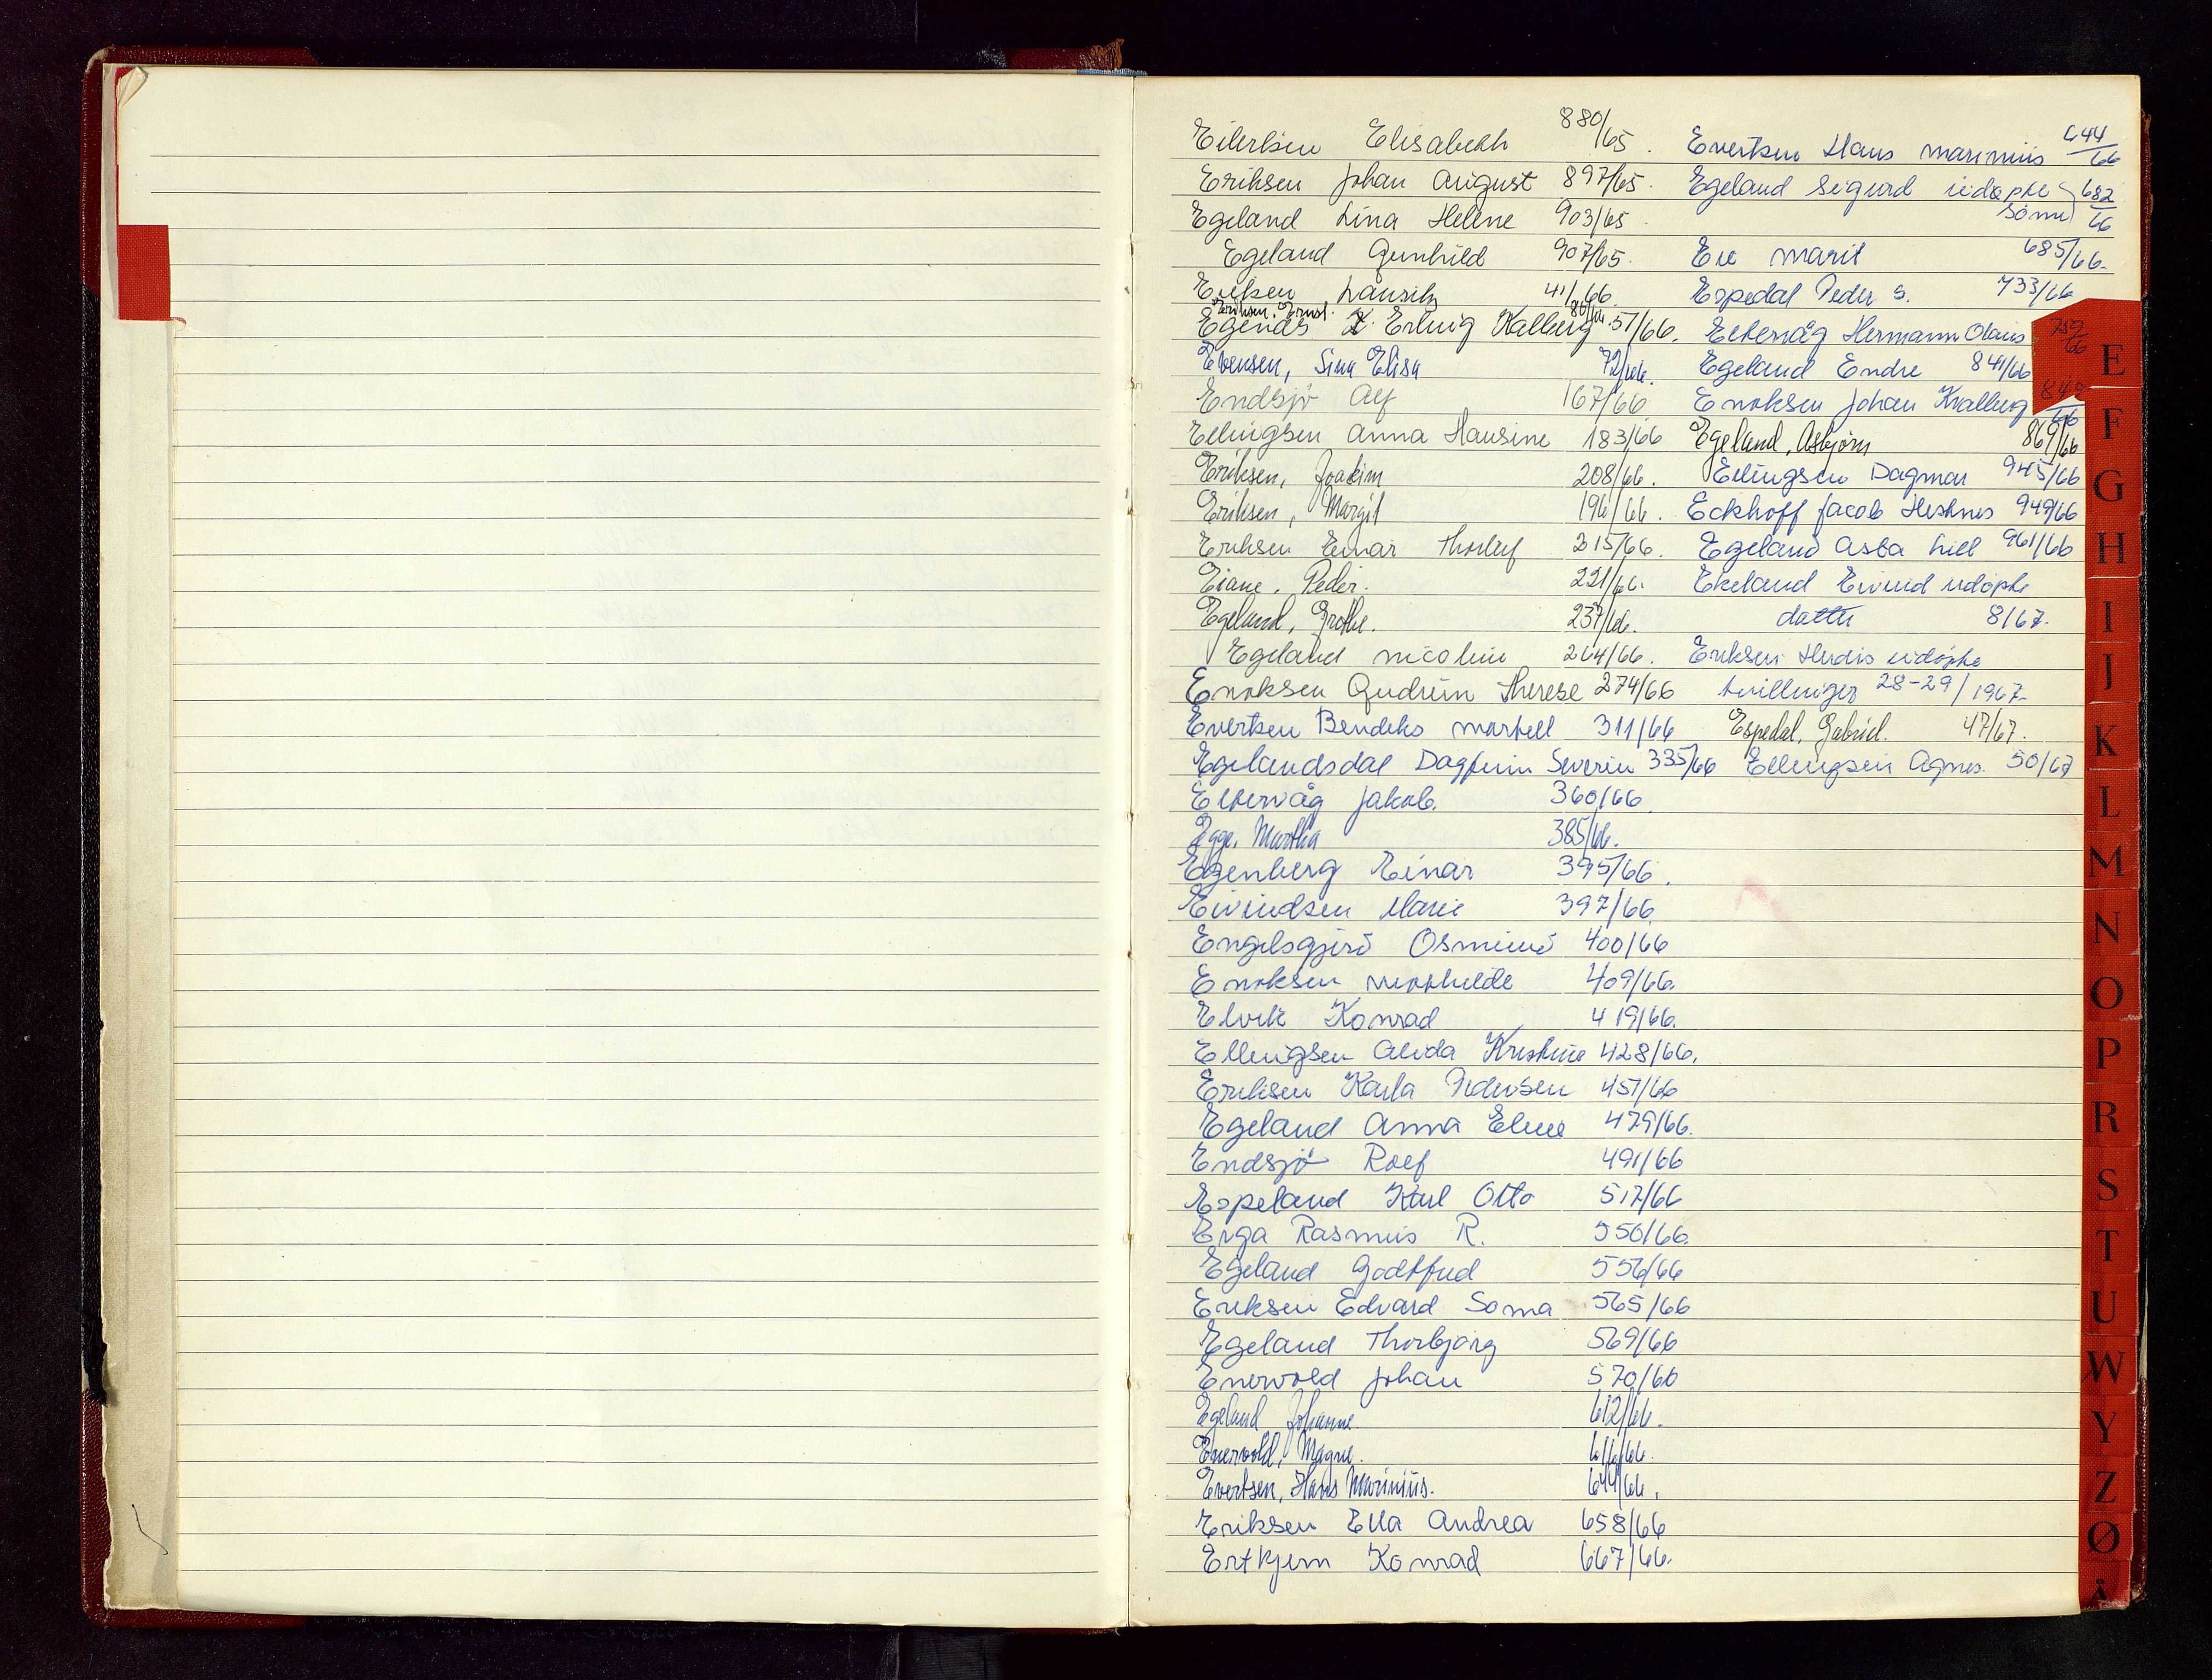 Eilertsen Elisabeth 880/65.
Eriksen Johan August 897/65.
Egeland Lina Helene 903/65
Egeland Gunhild 907/65.
Eriksen 41/66.
Eriksen, Ernst. 80/66
Egenæs Erling Kalberg 51/66.
Evensen, Sina Elisa 72/66.
Endsjö Alf 167/66
Ellingsen Anna Hansine 183/66
Eriksen, Joakim 208/66.
Eriksen, Margit 196/66.
Eriksen Einar Thorleif 215/66.
Eiane, Peder. 221/66.
Egeland, Grethe. 237/66.
Egeland Nicoline 264/66.
Enoksen Gudrun Therese 274/66
Evertsen Bendiks Martell 311/66
Egelandsdal Dagfinn Severin 335/66
Eltervåg Jakob. 360/66
Egge, Martha 385/66.
Egenberg Einar 395/66.
Eivindsen Marie 397/66
Engelsgjerd Osmund 400/66
Enoksen 409/66.
Elvik Konrad 419/66.
Ellingsen Alida Kristine 428/66.
Eriksen Karla Pedersen 457/66
Egeland Anna Eline 479/66.
Endsjö Rolf 491/66
Espeland Karl Otto 517/66
Erga Rasmus R. 550/66.
Egeland Godtfred 556/66
Eriksen Edvard Soma 565/66
Egeland Thorbjørg 569/66
Enervold Johan 570/66
Egeland Johanne. 612/66.
Enervold, Magne. 616/66.
Evertsen, Hans Marinius. 644/66.
Eriksen Ella Andrea 658/66
Ertkjern Konrad 667/66.
Evertsen Hans Marinius 644/66
Egeland Sigurd udøpte sønn 682/66
Eie Marit 685/66.
Espedal Peder S. 733/66
Eltervåg Hermann Olaus 759/66
Egeland Endre 841/66
Enoksen Johan Kvalberg 849/66
Egeland, Asbjørn 869/66
Ellingsen Dagmar 945/66
Eckhoff Jacob Hesknes 949/66
Egeland Asta Lill 961/66
Ekeland Eivind udøpte
datter 8/67.
Eriksen Herdis udøpte
tvillinger 28-29/1967.
Espedal, Gabriel. 47/67.
Ellingsen Agnes. 50/67
E
F
G
H
I
J
K
L
M
N
O
P
R
S
T
U
W
Y
Z
Ø
Å